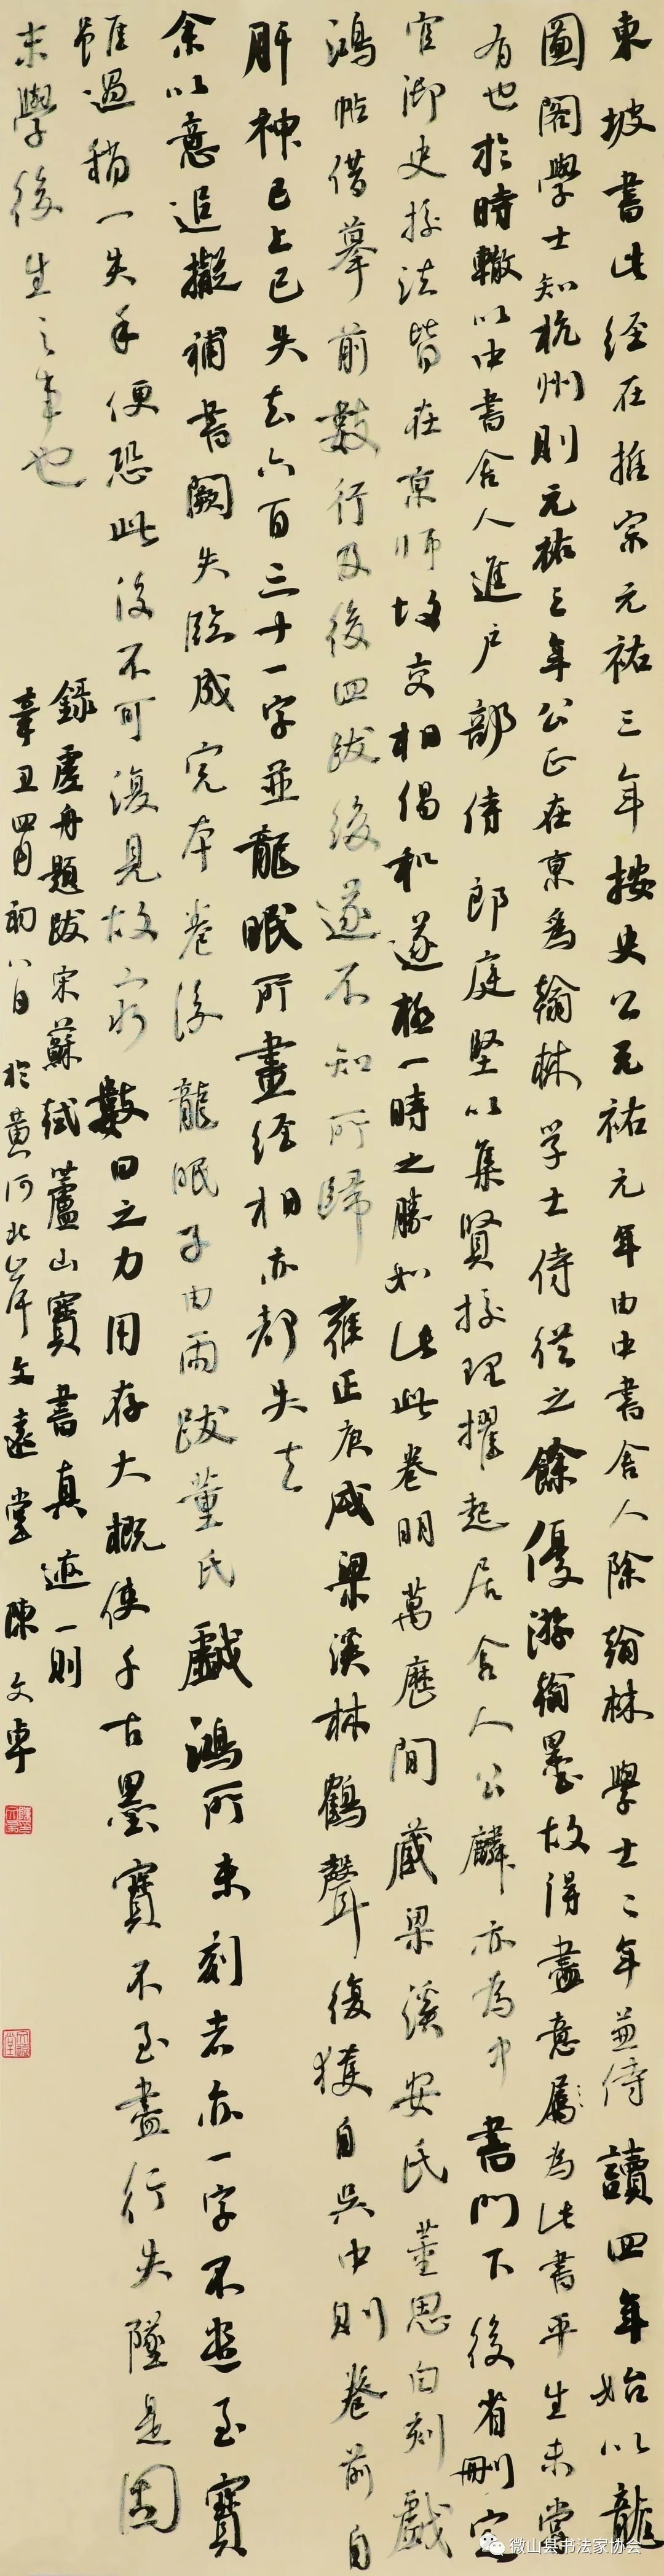 東坡書此經在推宗元祐三年按史公元祐元年由中書舍人除翰林學士二年兼侍讀四年始以龍
圖閣學士知杭州則元祐三年公正在京為翰林學士侍從之餘優游翰墨故得盡意屬為此書平生未嘗
有也於時轍以中書舍人進戶部侍郎庭堅以集賢校理擢起居舍人公麟亦為中書門下後省刪定
官御史檢法皆在京師故交相倡和遂極一時之勝如此此卷明萬歷間藏梁溪安氏董思白刻戲
鴻帖借摹前數行及後四跋後遂不知所歸雍正庚戌梁溪林鶴聲復獲自吳中則卷前自
肝神已上已失去六百三十一字並龍眠所畫經相亦都失去
余以意追擬補書闕失臨成完本卷後龍眠子由兩跋董氏戲鴻所未刻者亦一字不遺至寶
難過稍一失手便恐此後不可復見故窮數日之力用存大概使千古墨寶不至盡行失墜是固
末學後生之事也
錄虛舟題跋宋蘇軾蘆山寶書真迹一則
辛丑四月初八日於黃河北岸文遠堂陳文卓
微山县书法家协会